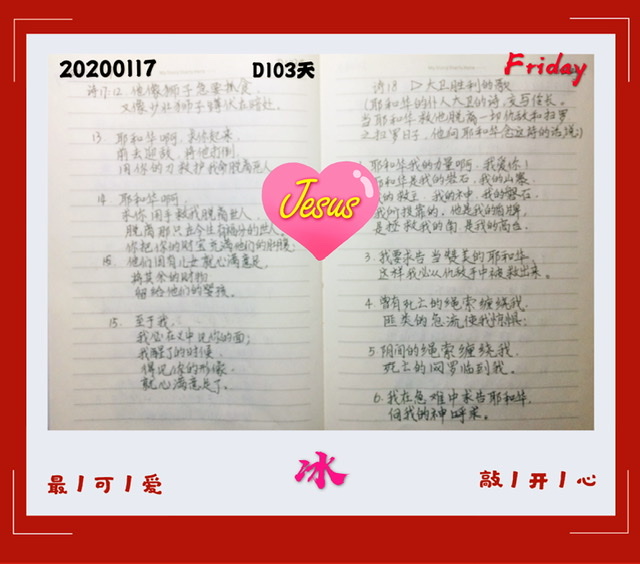 20200117
D103天
Friday
诗17:12 他像狮子急要抓食，
又像少壮狮子蹲伏在暗处。
13. 耶和华啊，求你起来，
前去迎敌，将他打倒，
用你的刀救护我命脱离恶人
14. 耶和华啊，
求你用手救我脱离世人，
脱离那只在今生有福分的世人。
你把你的财宝充满他们的肚腹；
他们因有儿女就心满意足，
将其余的财物
留给他们的婴孩。
15. 至于我，
我必在义中见你的面；
我醒了的时候，
得见你的形像
就心满意足了。
诗18 ▷ 大卫胜利的歌
(耶和华的仆人大卫的诗，交与伶长。
当耶和华救他脱离一切仇敌和扫罗
日子，他向耶和华念这诗的话说)
耶和华我的力量啊，我爱你！
耶和华是我的岩石，我的山寨，
我的救主，我的神，我的磐石，
我所投靠的，他是我的盾牌，
是拯救我的角，是我的高台。
3. 我要求告当赞美的耶和华，
这样我必从仇敌手中被救出来。
4. 曾有死亡的绳索缠绕我，
匪类的急流使我惊惧；
5. 阴间的绳索缠绕我，
死亡的网罗临到我。
6. 我在急难中求告耶和华，
向我的神呼求。
Jesus
冰
最丨可丨爱
敲丨开丨心